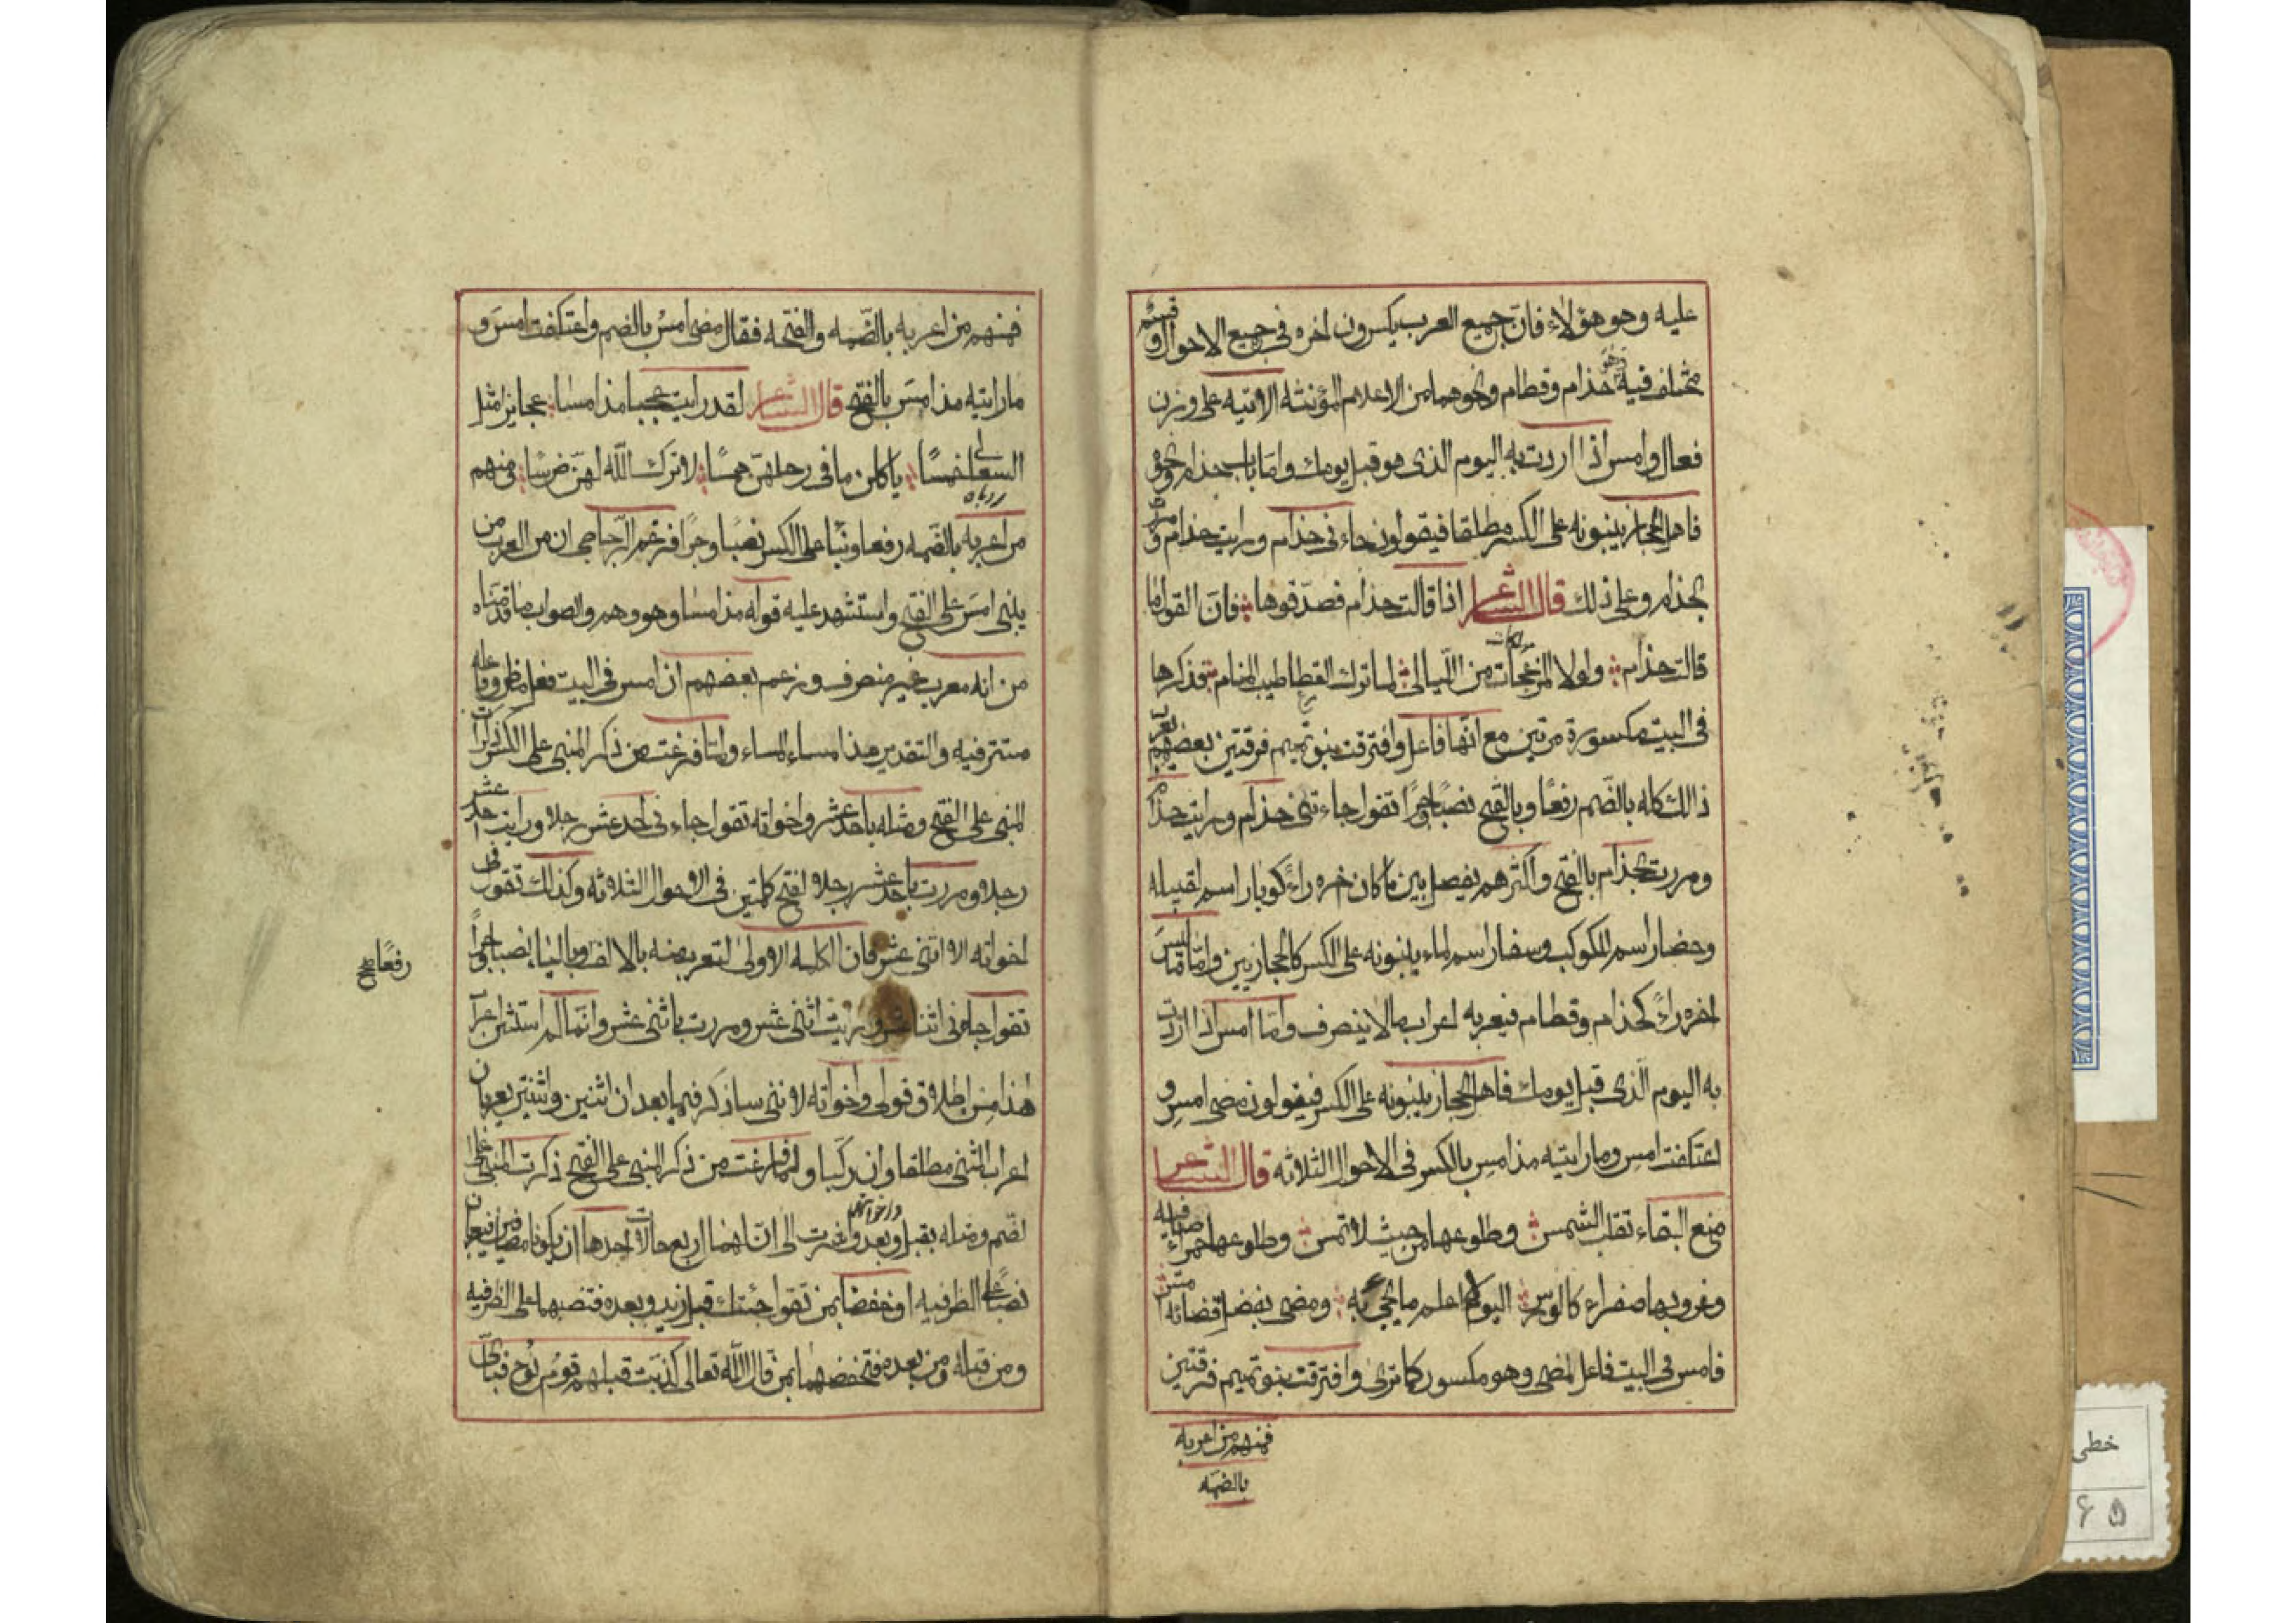 عليه وهو هؤلاء فان جميع العرب يكسرون اخره فى جميع الاحوال وقسم
مختلف فيه وهو حذام وقطام ونحوهما من الاعلام المؤنثه الاتيه على وزن
فعال وامس اذا اردت به اليوم الذى هو قبل يومك واما باب حذام ونحوه
فاهل الحجاز يبنونه على الكسر مطلقا فيقولون جاءنى حذام ورايت حذام ومررت
بحذام وعلى ذلك قال الشاعر اذا قالت حذام فصدقوها فان القول ما
قالت حذام ولولا المزعجات من الليالى لما ترك القطا طيب المنام فذكرها
فى البيت مكسورة مرتين مع انها فاعل وافترقت بنو تميم فرقتين بعضهم يعرب
ذالك كله بالضم رفعًا وبالفتح نصبًا وجرًا تقول جاءتنى حذام ورايت حذام
ومررت بحذام بالفتح واكثرهم يفصل بين ما كان اخره راءً كوبار اسم لقبيله
وحضار اسم لكوكب وسفار اسم لماء يبنونه على الكسر كالحجازيين واما ما ليس
اخره راءً كحذام وقطام فيعربه اعراب مالا ينصرف واما امس اذا اردت
به اليوم الّذى قبل يومك فاهل الحجاز يبنونه على الكسر فيقولون مضى امسِ و
اعتكفت امسِ وما رايته مذ امسِ بالكسر فى الاحوال الثلاثه قال الشاعر
منع البقاء تقلب الشمس وطلوعها من حيث لا تمس وطلوعها حمراء صافيه
وغروبها صفراء كالورس اليوم اعلم ما يجئ به ومضى بفصل قضائه امس
فامس فى البيت فاعل لمضى وهو مكسور كما ترى وافترقت بنو تميم فرقتين
فمنهم من اعربه
بالضمه
فمنهم من اعربه بالضّمه والفتحه فقال مضى امسُ بالضم واعتكفت امسَ و
ما رايته مذ امسَ بالفتح قال الشاعر لقد رايت عجبا مذ امسا عجايز مثل
السعالى خمسًا ياكلن ما فى رحلهن همسًا لا ترك اللّه لهنّ ضرسًا ومنهم
من اعربه بالضمه رفعا وبناه على الكسر نصبًا وجرًا فزعم الزجاجى ان من العرب من
يبنى امسَ على الفتح واستشهد عليه قوله مذ امسا وهو وهم والصواب ما قدمناه
من انه معرب غير منصرف وزعم بعضهم ان امس فى البيت فعل ماض وفاعله
مستتر فيه والتقدير مذ امسا المساء ولما فرغت من ذكر المبنى على الكسر ذكرت
المبنى على الفتح ومثله باحد عشر واخواته تقول جاءنى احد عشر رجلا ورايت احد عشر
رجلا ومررت باحد عشر رجلا بفتح كلمتين فى الاحوال الثلاثه وكذلك تقول فى
اخواته الا اثنى عشر فان الكلمه الاولى تعرب منه بالالف وبالياء نصبا وجرًا
رفعًا صح
تقول جاءنى اثنا عشر ورايت اثنى عشر ومررت باثنى عشر وانما لم استثن
هٰذا من اطلاق قولى واخواته لاننى ساذكر فيما بعد ان اثنين واثنتين يعربان
اعراب المثنى مطلقا وان ركّبا ولما فرغت من ذكر المبنى على الفتح ذكرت المبنى على
الضم ومثله بقبل وبعد واشرت الى ان لهما اربع حالات احدها ان يكونا مضافين فيعربان
نصبًا على الظرفيه او خفضا بمن تقول جئتك قبل زيد وبعده فتنصبهما على الظرفيه
ومن قبله ومن بعده فتخفضهما بمن قال اللّه تعالى كذبت قبلهم قوم نوح فباى
خطى